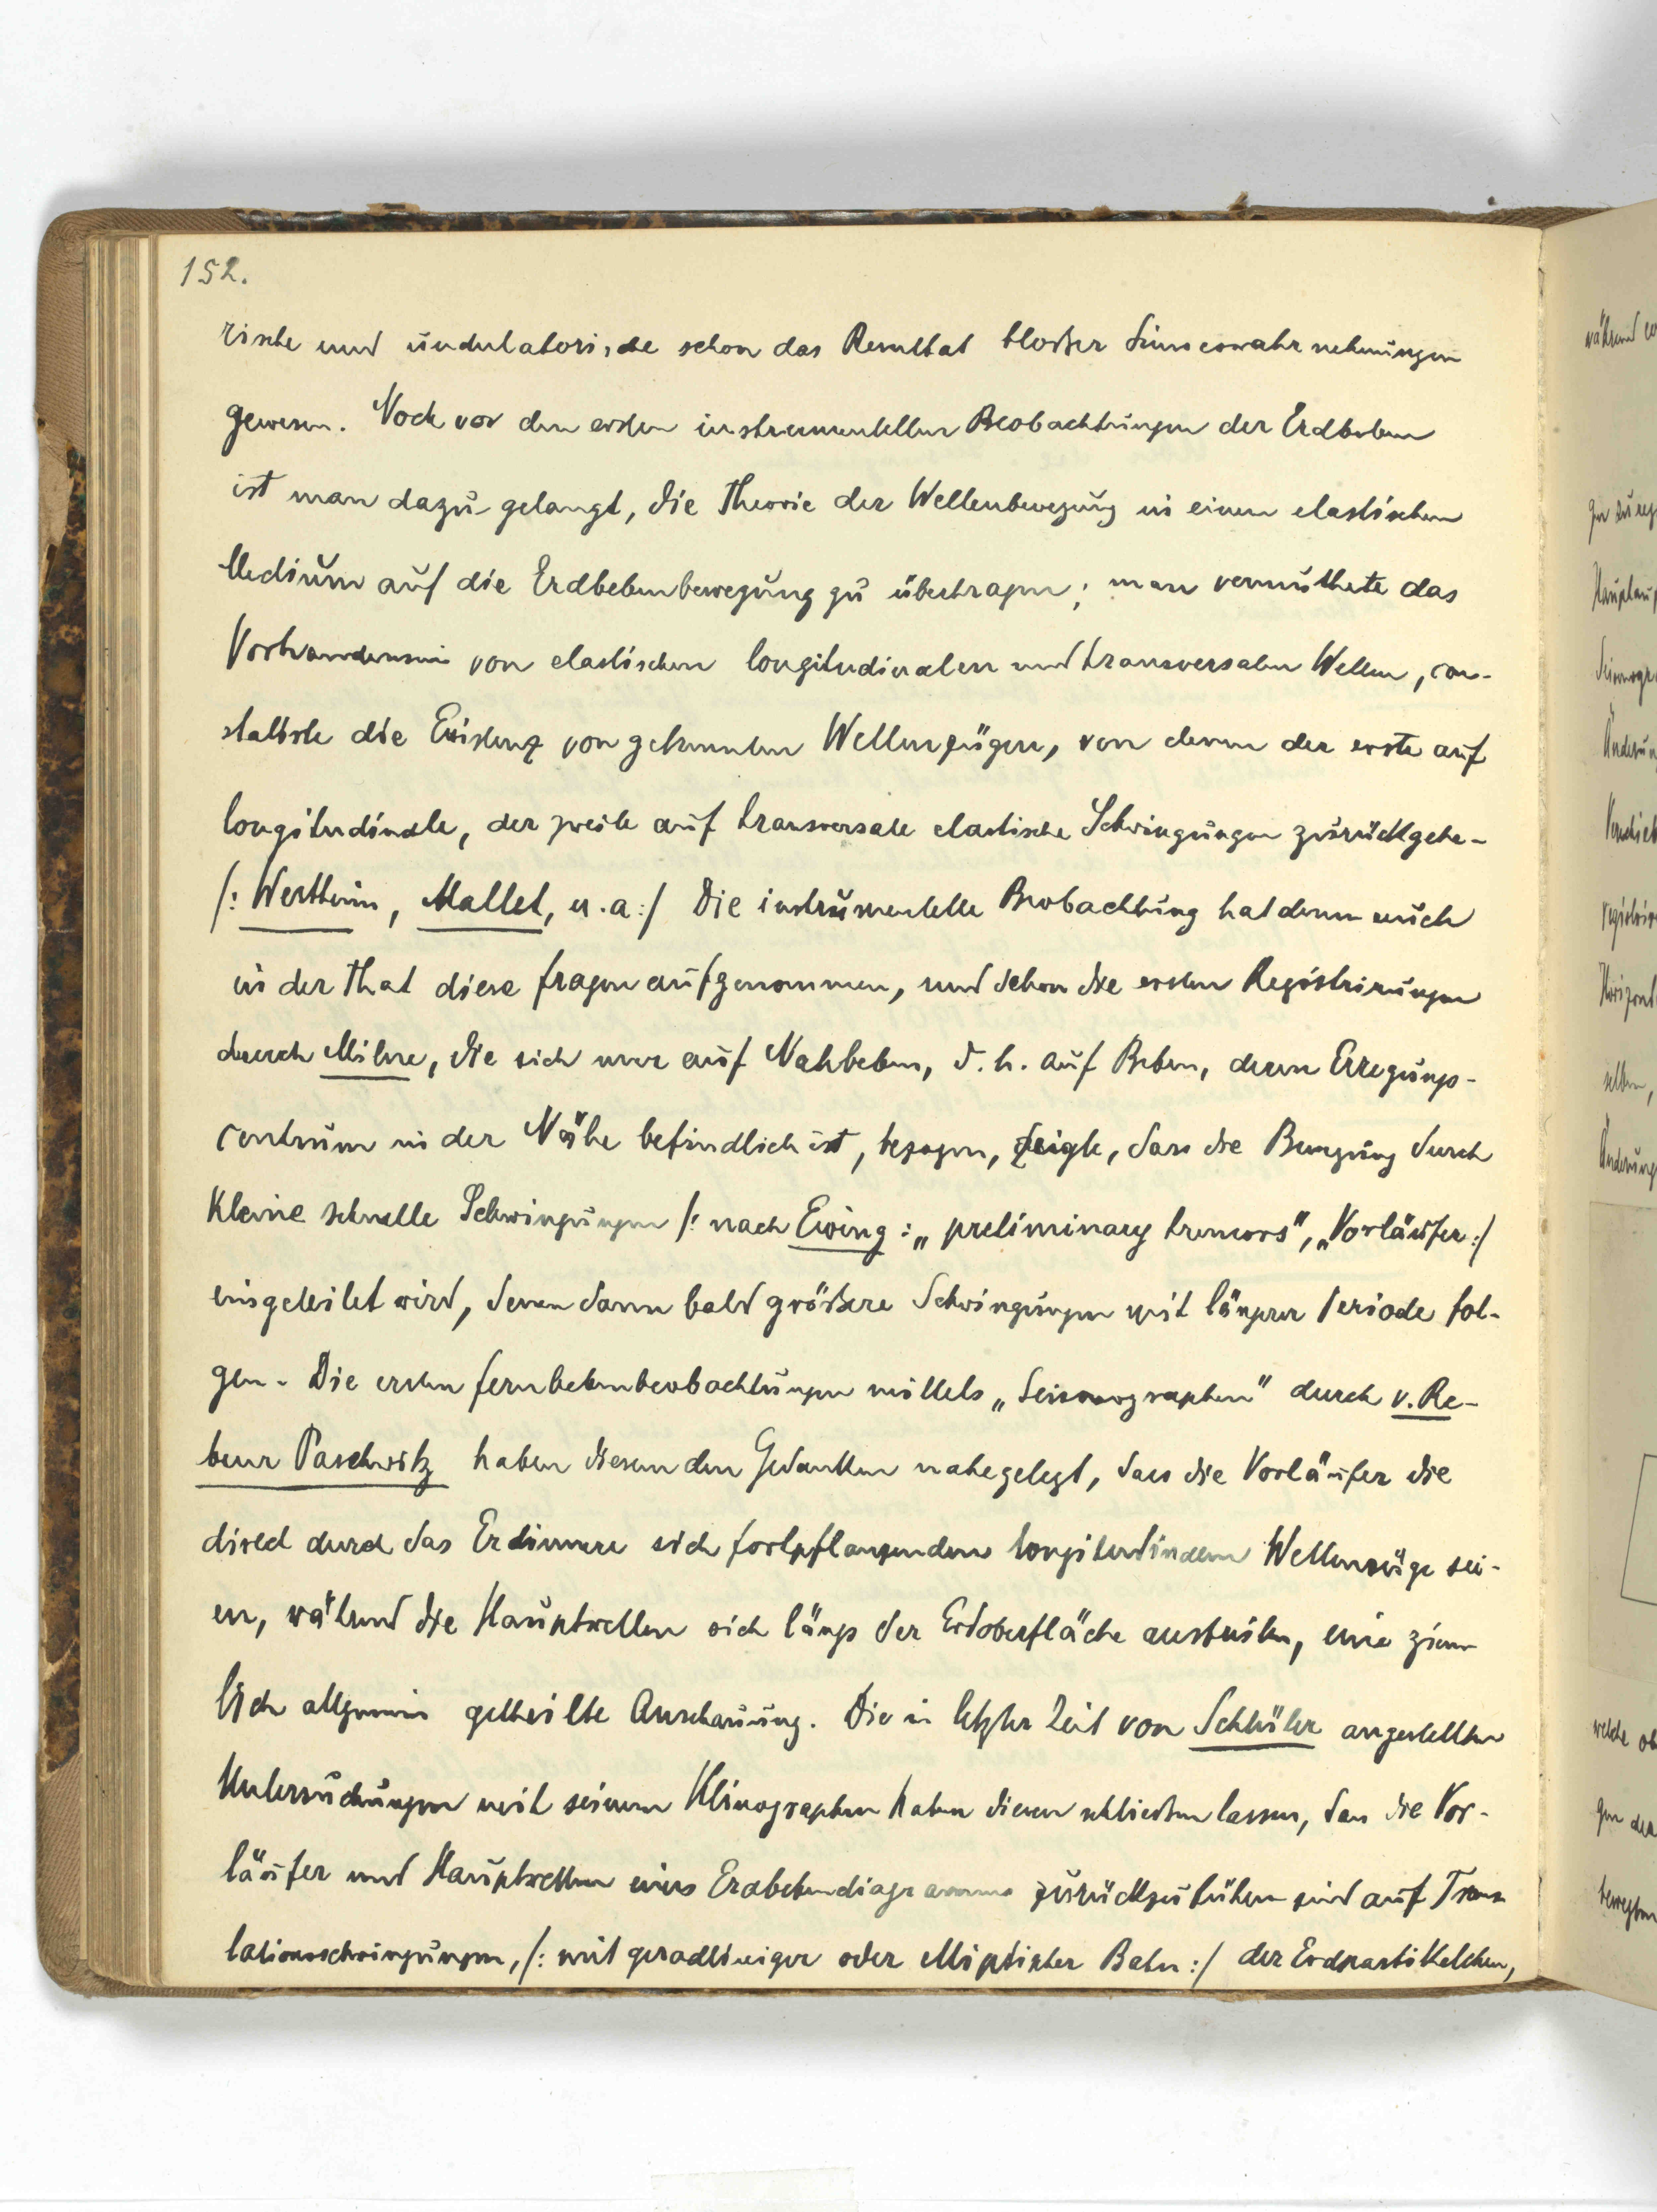 152.
rische und undulatorische schon das Resultat bloßer Sinneswahrnehmungen
gewesen. Noch vor den ersten instrumentellen Beobachtungen der Erdbeben
ist man dazu gelangt, die Theorie der Wellenbewegung in einem elastischen
Medium auf die Erdbebenbewegung zu übertragen; man vermuthete das
Vorhandensein von elastischen longitudinalen und transversalen Wellen, con-
statirte die Existenz von getrennten Wellenzügen, von denen der erste auf
longitudinale, der zweite auf transversale elastische Schwingungen zurückgehe-
/: Wertheim, Mallet, u. a:/ Die instrumentelle Beobachtung hat denn auch
in der That diese Fragen aufgenommen, und schon die ersten Registrirungen
durch Milne, die sich nur auf Nahbeben, d. h. auf Beben, deren Erregungs-
centrum in der Nähe befindlich ist, bezogen, zeigte, dass die Bewegung durch
kleine schnelle Schwingungen /: nach Ewing: „preliminary tremors", „Vorläufer:/
eingeleitet wird, denen dann bald größere Schwingungen mit längerer Periode fol-
gen. Die ersten Fernbebenbeobachtungen mittels „Seismographen" durch v. Re-
beur Paschwitz haben diesem den Gedanken nahegelegt, dass die Vorläufer die
direct durch das Erdinnere sich fortpflanzenden longitudinalen Wellenzüge sei-
en, während die Hauptwellen sich längs der Erdoberfläche ausbreiten, eine ziem
lich allgemein getheilte Anschauung. Die in letzter Zeit von Schlüter angestellten
Untersuchungen mit seinem Klinographen haben diesen schließen lassen, dass die Vor-
läufer und Hauptwellen eines Erdbebendiagramms zurückzuführen sind auf Trans
lationsschwingungen, /: mit geradliniger oder elliptischer Bahn:/ der Erdpartikelchen,